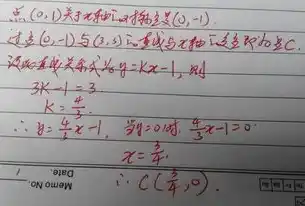 点(0,1)关于x轴的对称点是(0,-1).
过点(0,-1)与(3,3)的直线与x轴的交点即为点C.
设此直线关系式为y=kx-1,则
3k-1=3.
k=4/3.
∴ y=4/3x-1, 当y=0时, 4/3x-1=0.
x=3/4.
∴ C(3/4,0).
Memo No.
Date.